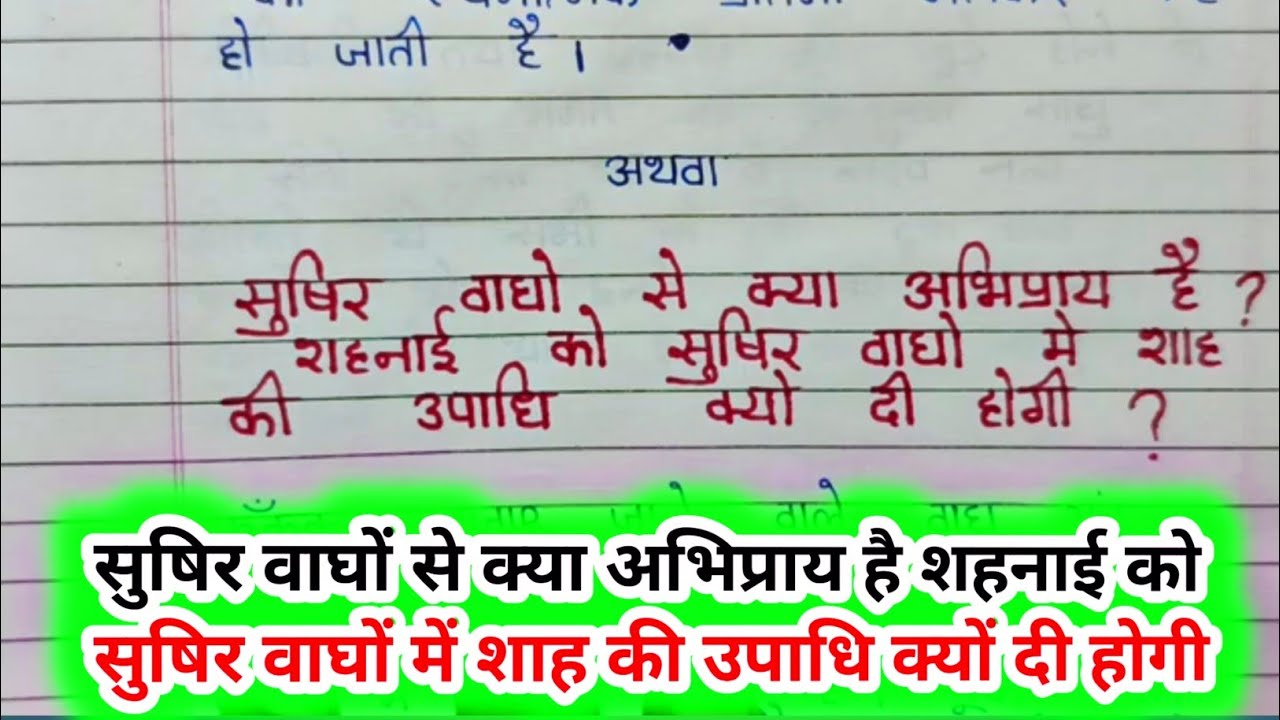 हो जाती है।
अथवा
सुषिर वाघो से क्या अभिप्राय है ?
शहनाई को सुषिर वाघो मे शाह
की उपाधि क्यो दी होगी ?
जाने वाले वाघ
सुषिर वाघों से क्या अभिप्राय है शहनाई को
सुषिर वाघों में शाह की उपाधि क्यों दी होगी